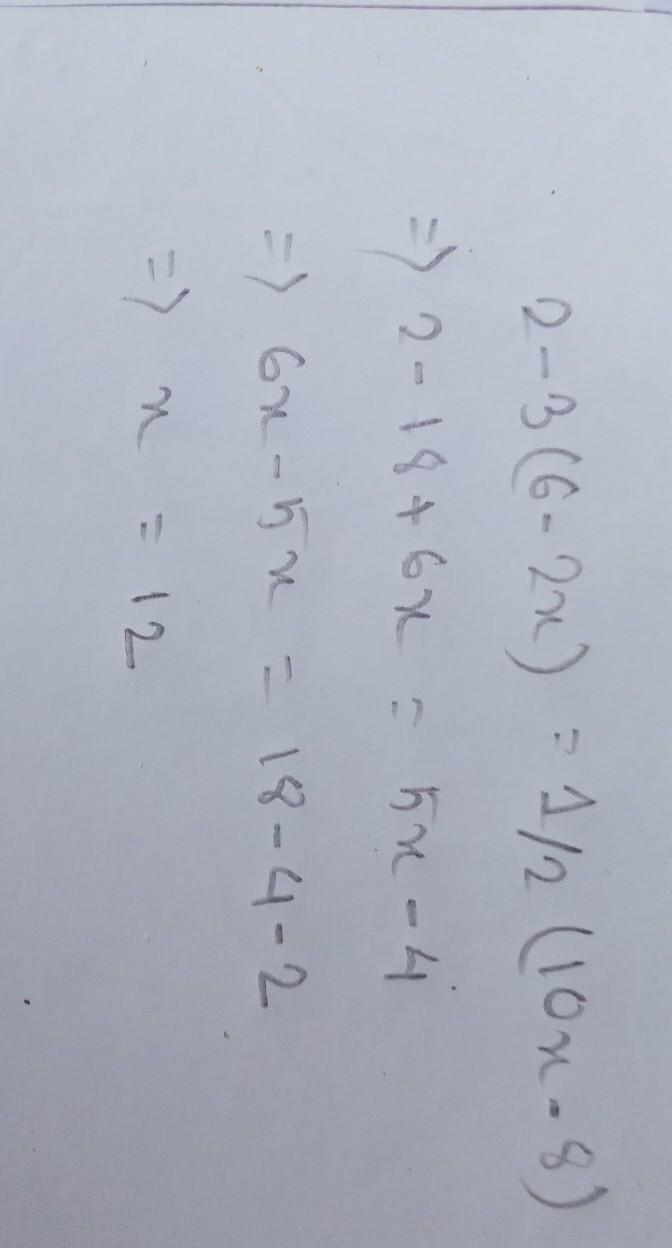 2-3(6-2x) = 1/2 (10x-8)
=> 2-18+6x = 5x-4
=> 6x-5x = 18-4-2
=> x = 12